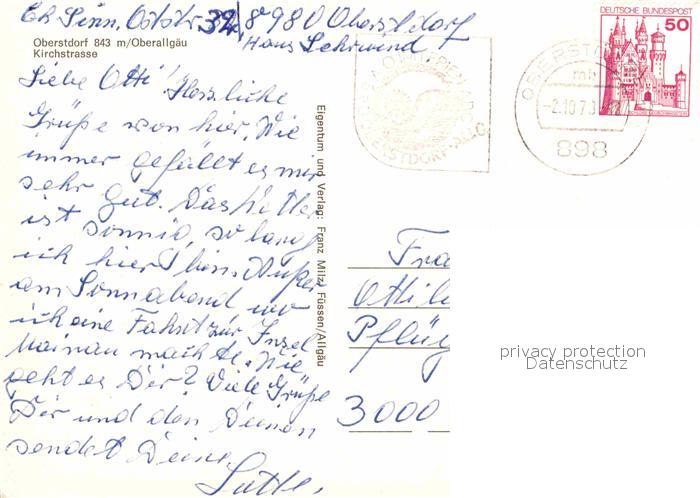 Oststr. 39, 8980 Oberstdorf
Haus Lehrwind
Oberstdorf 843 m/Oberallgäu
Kirchstrasse
Liebe Otti! Herzliche
Grüße von hier. Wie
immer gefällt es mir
sehr gut. Das Wetter
ist sonnig, so lang
ich hier bin. Außer
am Sonnabend wo
ich eine Fahrt zur Insel
Mainau machte. Wie
geht es Dir? Viele Grüße
Dir und den Deinen
sendet Deine
Eigentum und Verlag: Franz Milz, Füssen/Allgäu
DEUTSCHE BUNDESPOST
50
OBERSTDORF
mb
-2.10.7
898
Fra
Ottil
Pflüg
3000
privacy protection
Datenschutz